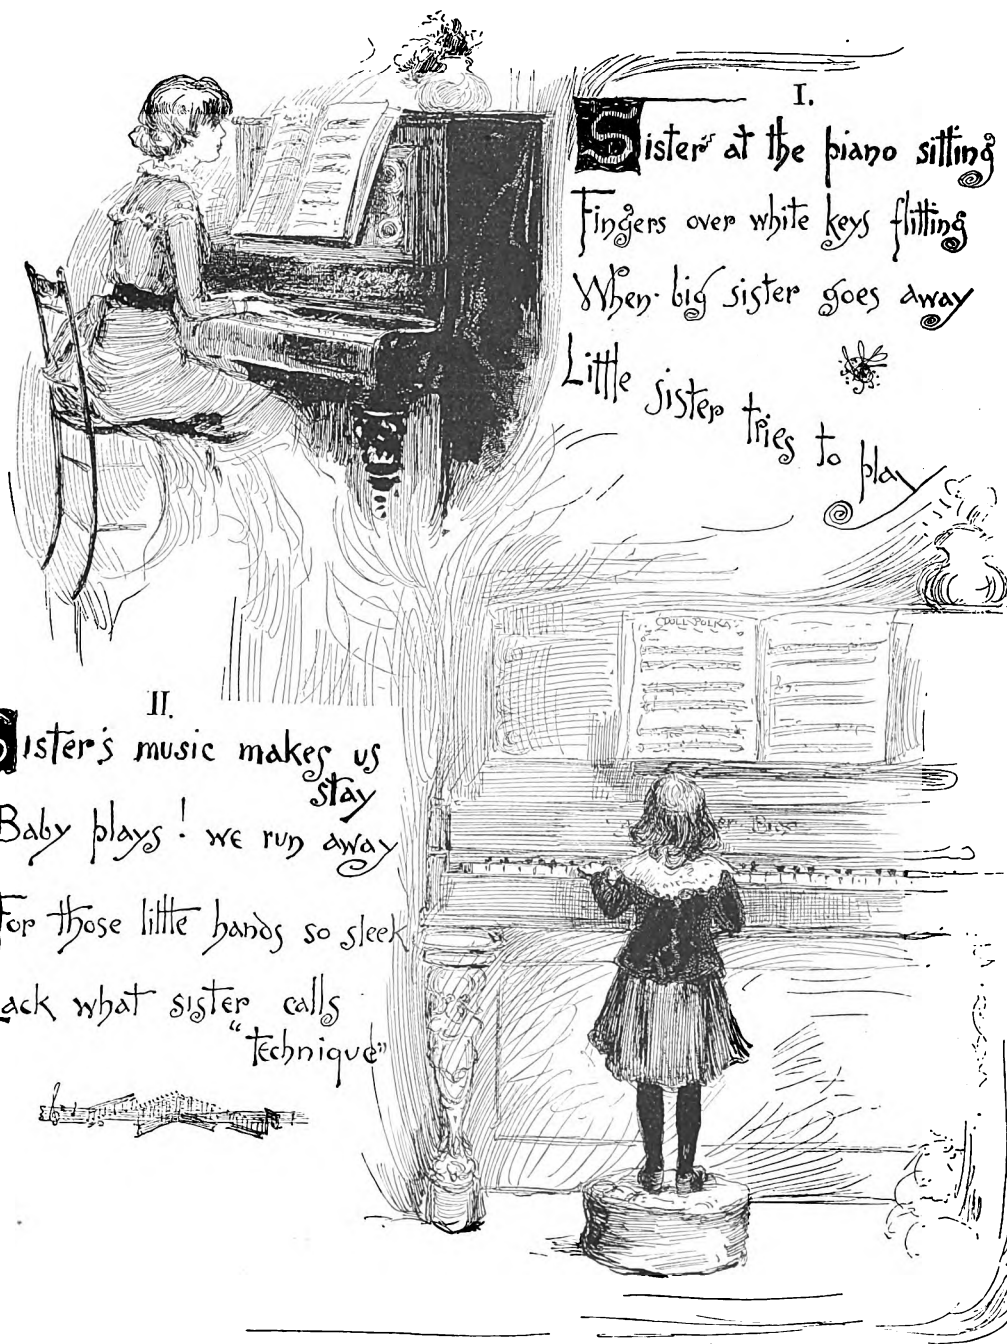 I.
Sister's at the piano sitting
Fingers over white keys flitting
When big sister goes away
Little sister tries to play
DOLL POLKA
II.
Sister's music makes us
stay
Baby plays! we run away
For those little hands so sleek
Lack what sister calls
"technique"